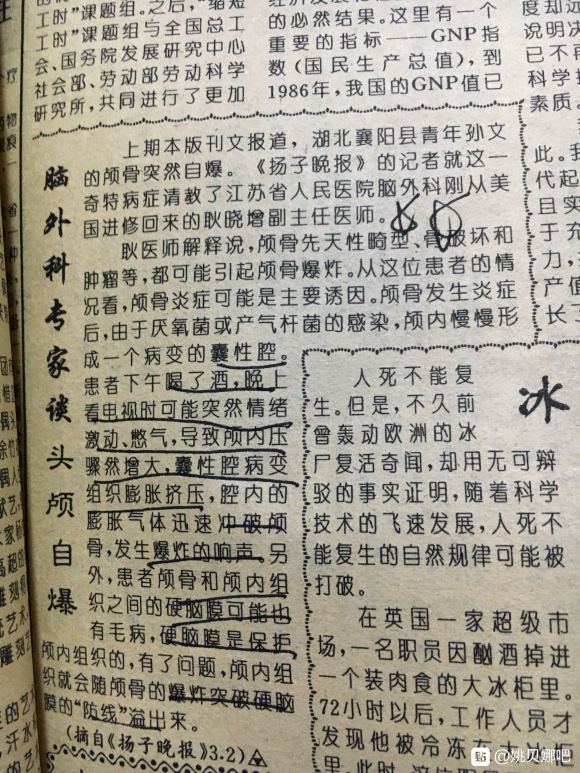 工时”课题组。之后,“缩短
工时”课题组与全国总工
会、国务院发展研究中心
社会部、劳动部劳动科学
研究所,共同进行了更加
的必然结果。这里有一个
重要的指标——GNP指
数(国民生产总值),到
1986年,我国的GNP值已
度却
说明
已不
科学
素质
脑外科专家谈头颅自爆
上期本版刊文报道,湖北襄阳县青年孙文
的颅骨突然自爆。《扬子晚报》的记者就这一
奇特病症请教了江苏省人民医院脑外科刚从美
国进修回来的耿晓增副主任医师。
耿医师解释说,颅骨先天性畸型、骨破坏和
肿瘤等,都可能引起颅骨爆炸。从这位患者的情
况看,颅骨炎症可能是主要诱因。颅骨发生炎症
后,由于厌氧菌或产气杆菌的感染,颅内慢慢形
成一个病变的囊性腔。
患者下午喝了酒,晚上
看电视时可能突然情绪
激动、憋气,导致颅内压
骤然增大,囊性腔病变
组织膨胀挤压,腔内的
膨胀气体迅速冲破颅
骨,发生爆炸的响声。另
外,患者颅骨和颅内组
织之间的硬脑膜可能也
有毛病,硬脑膜是保护
颅内组织的,有了问题,颅内组
织就会随颅骨的爆炸突破硬脑
膜的“防线”溢出来。
(摘自《扬子晚报》3.2)
此。我
代起
且实
于充
力,
产值
长了
冰
人死不能复
生。但是,不久前
曾轰动欧洲的冰
尸复活奇闻,却用无可辩
驳的事实证明,随着科学
技术的飞速发展,人死不
能复生的自然规律可能被
打破。
在英国一家超级市
场,一名职员因酗酒掉进
一个装肉食的大冰柜里。
72小时以后,工作人员才
发现他被冷冻在大冰柜
贴 @姚贝娜吧